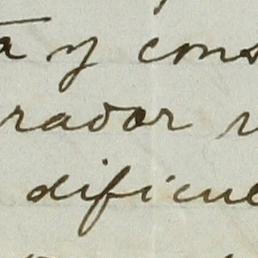 y cons
rador
dificul